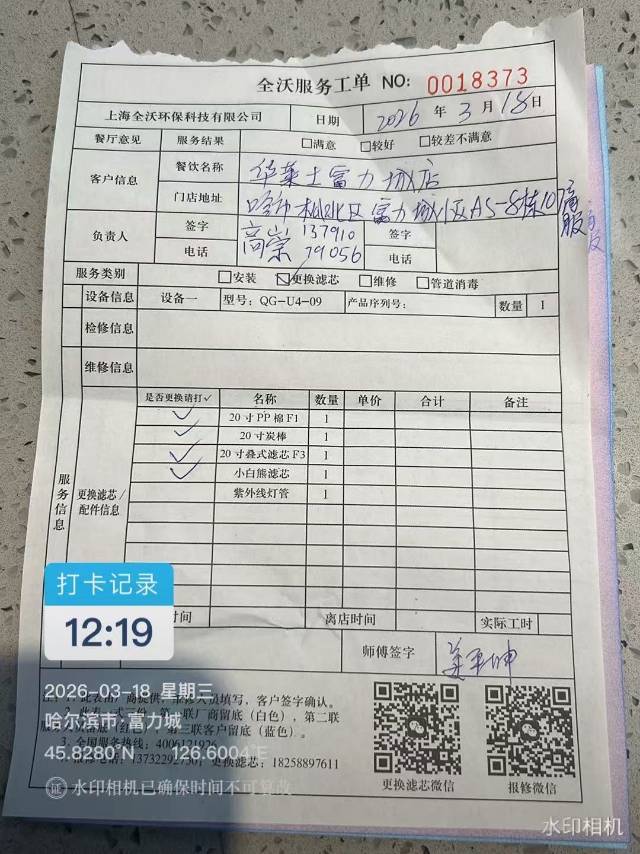 全沃服务工单 NO: 0018373
上海全沃环保科技有限公司 日期 2026 年 3 月 18 日
餐厅意见 服务结果 □满意 □较好 □较差不满意
客户信息 餐饮名称 华莱士富力城店
门店地址 哈市松北区富力城小区A5-8栋107商服
负责人 签字 高崇 137910 签字
电话 79056 电话
服务类别 □安装 ☑更换滤芯 □维修 □管道消毒
设备信息 设备一 型号: QG-U4-09 产品序列号: 数量 1
检修信息
维修信息
服务信息 更换滤芯/配件信息
是否更换请打✓ 名称 数量 单价 合计 备注
✓ 20寸PP棉F1 1
✓ 20寸炭棒 1
✓ 20寸叠式滤芯F3 1
✓ 小白熊滤芯 1
紫外线灯管 1
时间 离店时间 实际工时
师傅签字
打卡记录
12:19
2026-03-18 星期三
哈尔滨市·富力城
45.8280°N 126.6004°E
水印相机已确保时间不可篡改
商提供，维修人员填写，客户签字确认。
一式三份，第一联厂商留底（白色），第二联
第三联客户留底（蓝色）。
3. 全国服务热线: 4006121
更换滤芯: 18258897611
更换滤芯微信 报修微信
水印相机